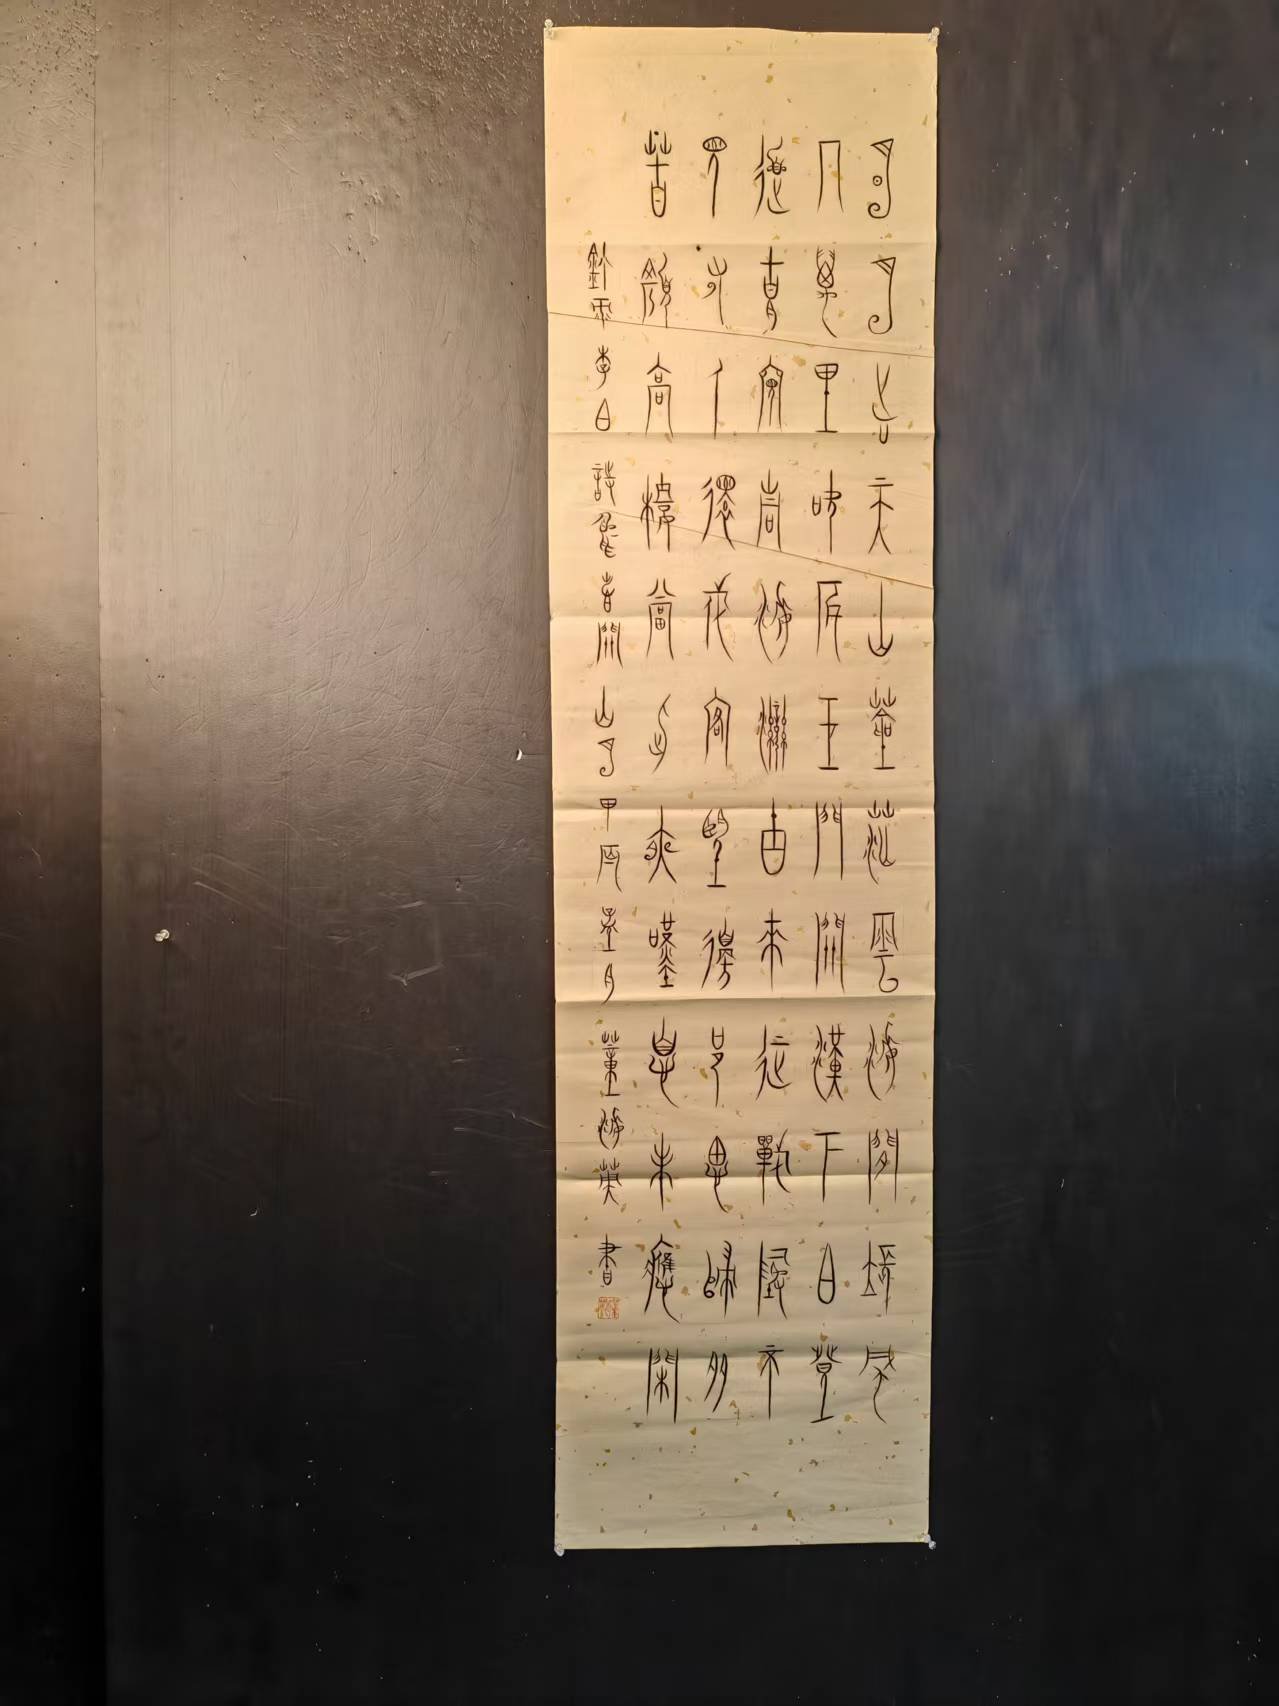 明月出天山蒼茫雲海間長風
幾萬里吹度玉門關漢下白登
道胡窺青海灣由來征戰地不
見有人還戍客望邊邑思歸多
苦顏高樓當此夜嘆息未應閑
李白詩關山月甲辰月董海英書